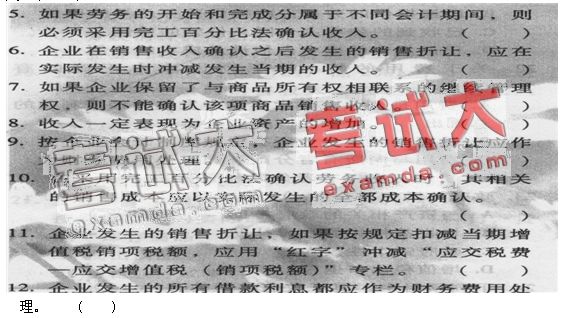 5. 如果劳务的开始和完成分属于不同会计期间，则
必须采用完工百分比法确认收入。 （ ）
6. 企业在销售收入确认之后发生的销售折让，应在
实际发生时冲减发生当期的收入。 （ ）
7. 如果企业保留了与商品所有权相联系的继续管理
权，则不能确认该项商品销售收入。 （ ）
8. 收入一定表现为企业资产的增加。 （ ）
9. 按企业会计 ，企业发生的销售折让应作
处理。 ）
10. 完工百分比法确认劳务 时，其相关
的销 成本应以实际发生的全部成本确认。
（ ）
11. 企业发生的销售折让，如果按规定扣减当期增
值税销项税额，应用“红字”冲减“应交税费
—应交增值税（销项税额）”专栏。 （ ）
12. 企业发生的所有借款利息都应作为财务费用处
理。 （ ）
考试大
examda.com
考试大
examda.com